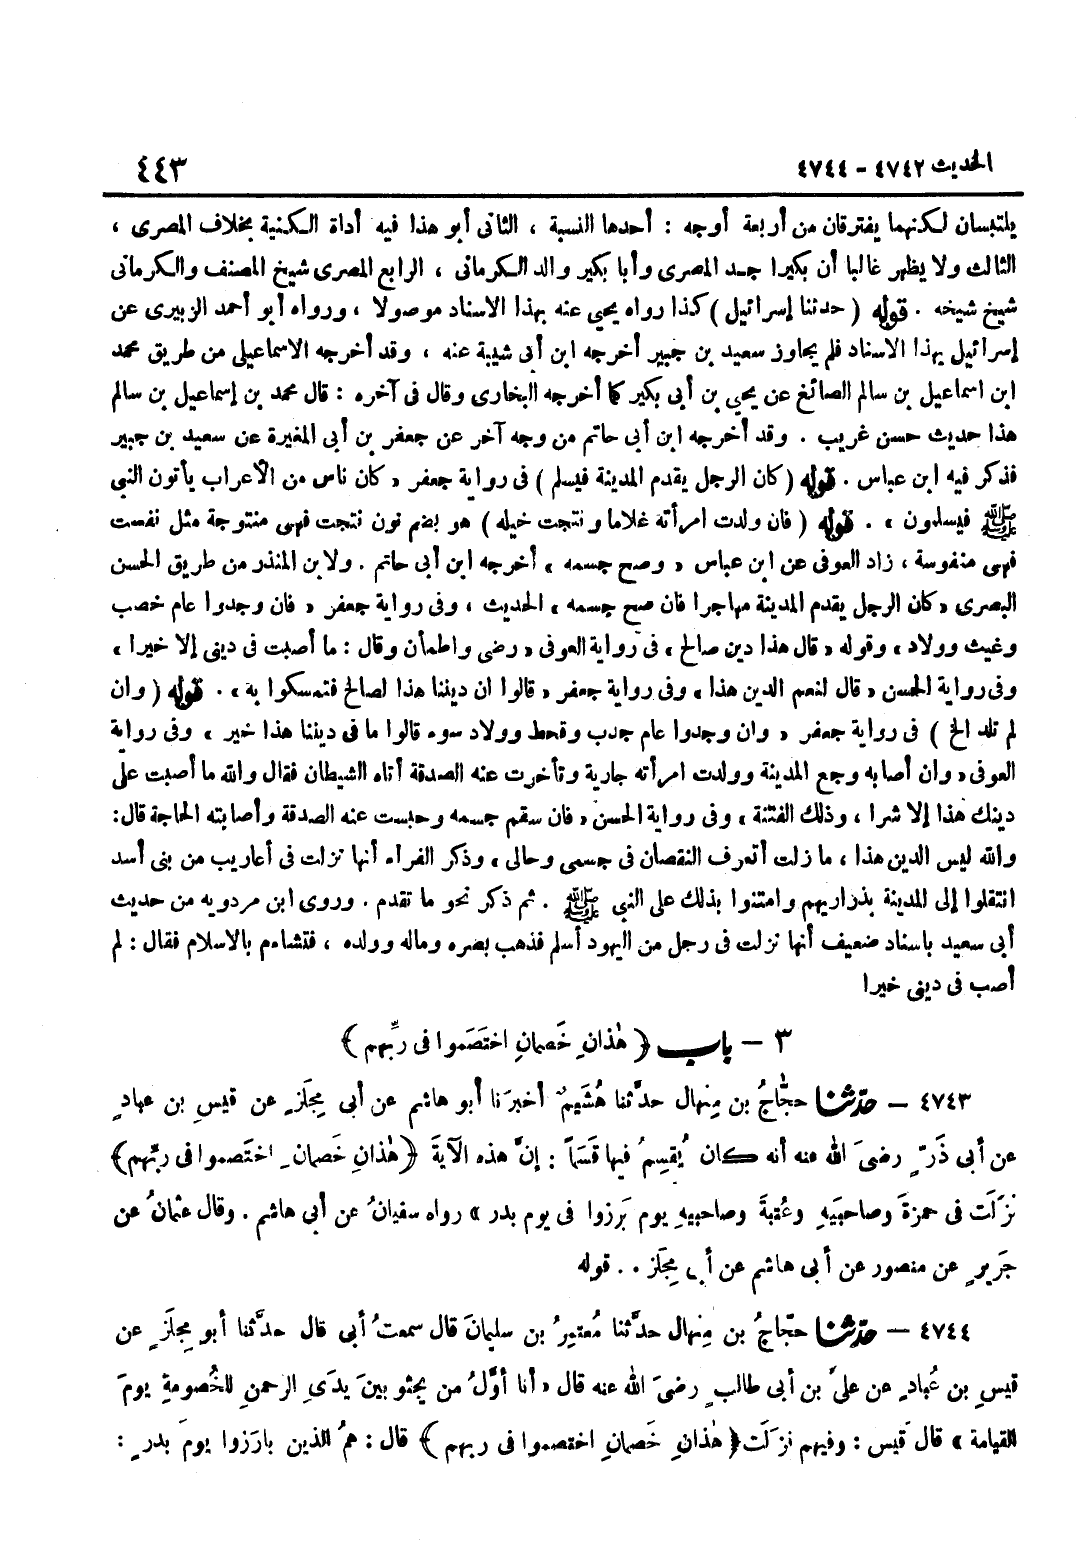 الحديث ٤٧٤٢ - ٤٧٤٤
٤٤٣
يلتبسان لكنهما يفترقان من أربعة أوجه : أحدها النسبة ، الثانى أبو هذا فيه أداة الكنية بخلاف المصرى ،
الثالث ولا يظهر غالبا أن بكيرا جد المصرى وأبا بكير والد الكرمانى ، الرابع المصرى شيخ المصنف والكرمانى
شيخ شيخه . قوله ( حدثنا إسرائيل ) كذا رواه يحيى عنه بهذا الاسناد موصولا ، ورواه أبو أحمد الزبيرى عن
إسرائيل بهذا الاسناد فلم يجاوز سعيد بن جبير أخرجه ابن أبى شيبة عنه ، وقد أخرجه الاسماعيلى من طريق محمد
ابن اسماعيل بن سالم الصائغ عن يحيى بن أبى بكير كما أخرجه البخارى وقال فى آخره : قال محمد بن إسماعيل بن سالم
هذا حديث حسن غريب . وقد أخرجه ابن أبى حاتم من وجه آخر عن جعفر بن أبى المغيرة عن سعيد بن جبير
فذكر فيه ابن عباس . قوله ( كان الرجل يقدم المدينة فيسلم ) فى رواية جعفر « كان ناس من الأعراب يأتون النبى
ﷺ فيسلمون » . قوله ( فان ولدت امرأته غلاما ونتجت خيله ) هو بضم نون نتجت فهى منتوجة مثل نفست
فهى منفوسة ، زاد العوفى عن ابن عباس « وصح جسمه » أخرجه ابن أبى حاتم . ولابن المنذر من طريق الحسن
البصرى « كان الرجل يقدم المدينة مهاجرا فان صح جسمه » الحديث ، وفى رواية جعفر « فان وجدوا عام خصب
وغيث وولاد » وقوله « قال هذا دين صالح » فى رواية العوفى « رضى واطمأن وقال : ما أصبت فى دينى إلا خيرا »
وفى رواية الحسن « قال لنعم الدين هذا » وفى رواية جعفر « قالوا ان ديننا هذا لصالح فتمسكوا به » . قوله ( وان
لم تلد الخ ) فى رواية جعفر « وان وجدوا عام جدب وقحط وولاد سوء قالوا ما فى ديننا هذا خير » وفى رواية
العوفى « وان أصابه وجع المدينة وولدت امرأته جارية وتأخرت عنه الصدقة أتاه الشيطان فقال والله ما أصبت على
دينك هذا إلا شرا ، وذلك الفتنة » وفى رواية الحسن « فان سقم جسمه وحبست عنه الصدقة وأصابته الحاجة قال :
والله ليس الدين هذا ، ما زلت أتعرف النقصان فى جسمى وحالى » وذكر الفراء أنها نزلت فى أعاريب من بنى أسد
انتقلوا إلى المدينة بذراريهم وامتنوا بذلك على النبى ﷺ . ثم ذكر نحو ما تقدم . وروى ابن مردويه من حديث
أبى سعيد باسناد ضعيف أنها نزلت فى رجل من اليهود أسلم فذهب بصره وماله وولده ، فتشاءم بالاسلام فقال : لم
أصب فى دينى خيرا
٣ - باب ﴿ هٰذانِ خَصمانِ اختَصَموا فى ربِّهم ﴾
٤٧٤٣ - حدّثنا حجّاجُ بن مِنهال حدَّثنا هُشَيمٌ أخبرَنا أبو هاشم عن أبى مِجلَزٍ عن قيسِ بن عبادٍ
عن أبى ذَرّ رضىَ الله عنه أنه كان يُقسِمُ فيها قَسَمًا : إنَّ هذه الآيةَ ﴿ هٰذانِ خَصمانِ اختصموا فى ربِّهم ﴾
نزَلَت فى حمزةَ وصاحبَيهِ وعُتبةَ وصاحبيهِ يوم بَرزوا فى يوم بدر » رواه سفيانُ عن أبى هاشم . وقال عثمانُ عن
جَريرٍ عن منصور عن أبى هاشم عن أبى مِجلَز . . قوله
٤٧٤٤ - حدّثنا حجّاجُ بن مِنهال حدَّثنا مُعتمِرُ بن سليمانَ قال سمعتُ أبى قال حدَّثنا أبو مِجلَزٍ عن
قيسِ بن عُبادٍ عن علىّ بن أبى طالبٍ رضىَ الله عنه قال « أنا أوَّلُ من يجثو بينَ يدَىِ الرحمنِ للخُصومةِ يومَ
القيامة » قال قَيس : وفيهم نزَلَت ﴿ هٰذانِ خَصمانِ اختصموا فى ربهم ﴾ قال : همُ الذين بارَزوا يومَ بدرٍ :